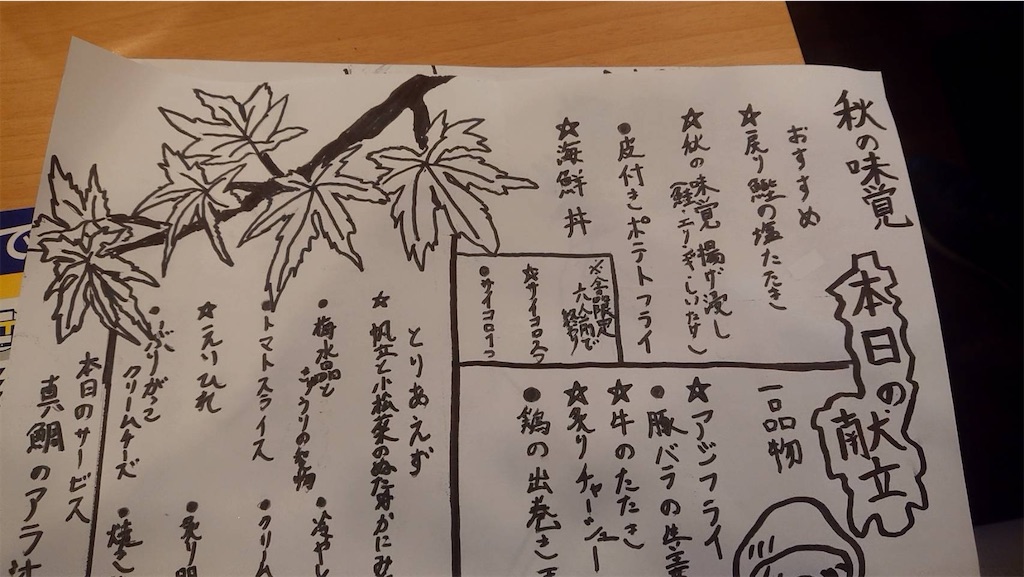 秋の味覚
本日の献立
おすすめ
☆戻り鰹の塩たたき
☆秋の味覚 揚げ浸し
鮭・エリンギ・しいたけ
●皮付きポテトフライ
☆海鮮丼
※全品限定
☆サイコロ
●サイコロ
一品物
☆アジフライ
●豚バラの生姜
☆牛のたたき
☆炙りチャーシュー
●鶏の出巻き玉
とりあえず
☆帆立と小松菜のぬた
●梅水晶と
キュウリの和物
●トマトスライス
☆えいひれ
●いぶりがっこ
クリームチーズ
●冷やし
●クリーム
●炙り明
●焼き
本日のサービス
真鯛のアラ汁